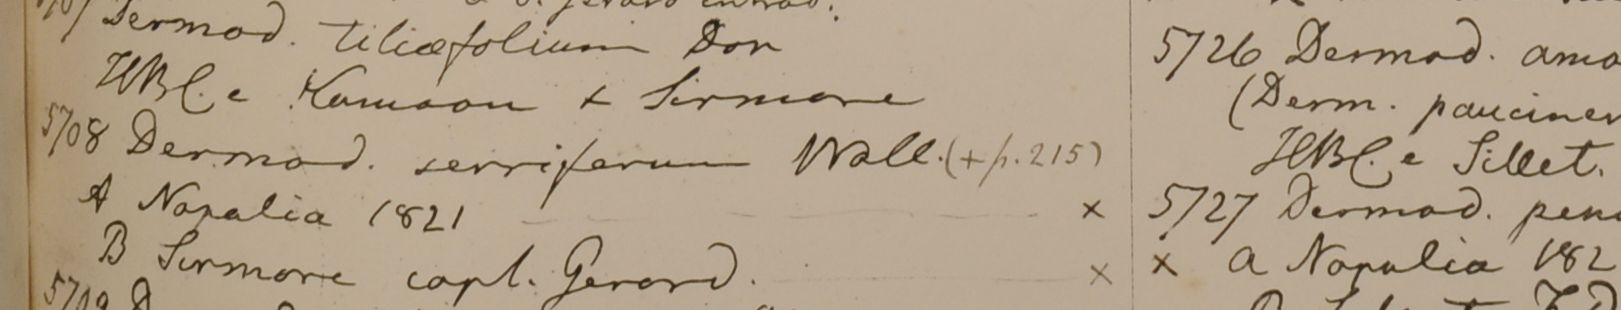 Dermod. tiliæfolium Don
HBC. e Kamaon + Sirmore
5708 Dermod. serriferum Wall. (+ p. 215)
A Napalia 1821 ×
B Sirmore capt. Gerard. ×
5709
5726 Dermod. amo
(Derm. pauciner
HBC. e Sillet.
5727 Dermod. pen
× a Napalia 182